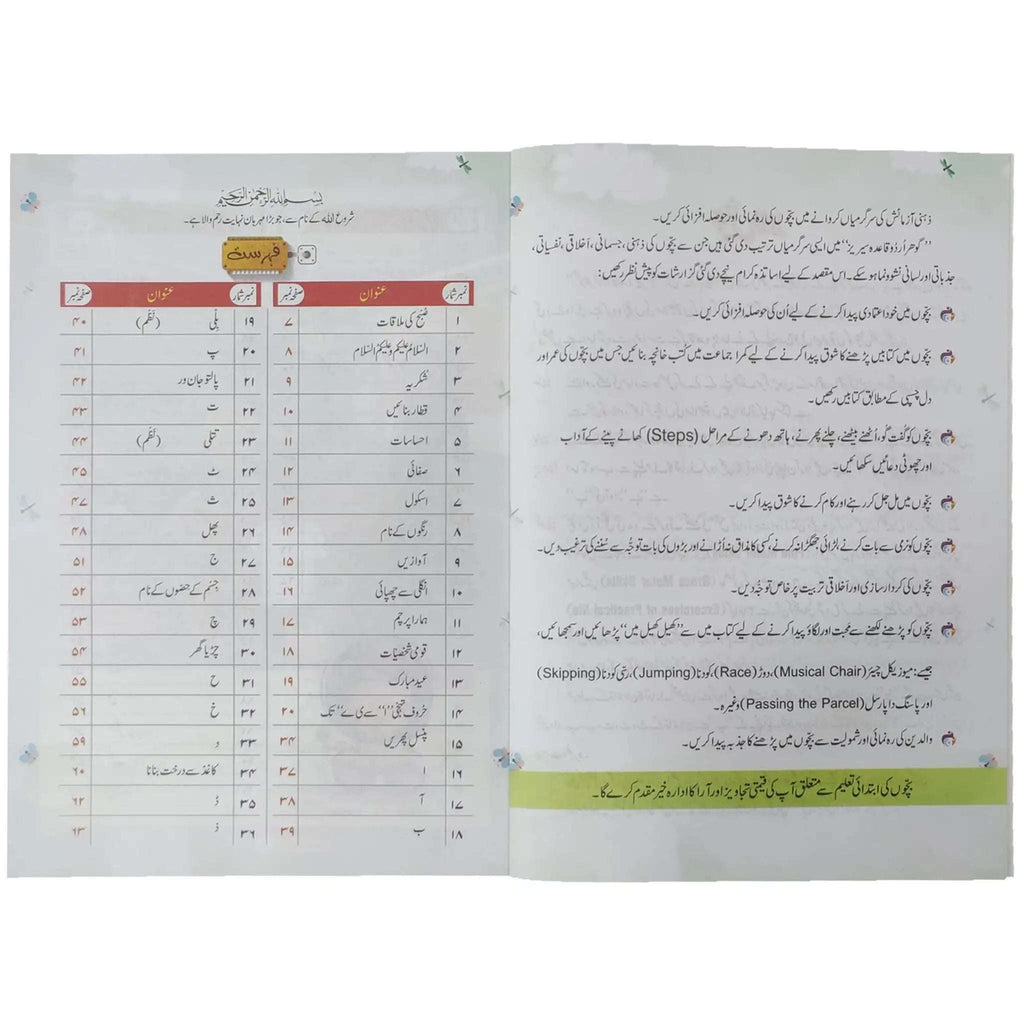 ذہنی آزمائش کی سرگرمیاں کروانے میں بچّوں کی رہ نمائی اور حوصلہ افزائی کریں۔
’’گوھر اُردُو قاعدہ سیریز‘‘ میں ایسی سرگرمیاں ترتیب دی گئی ہیں جن سے بچّوں کی ذہنی، جسمانی، اَخلاقی، نفسیاتی،
جذباتی اور لسانی نشوونما ہو سکے۔ اس مقصد کے لیے اساتذہ کرام نیچے دی گئی گزارشات کو پیشِ نظر رکھیں:
بچّوں میں خود اعتمادی پیدا کرنے کے لیے اُن کی حوصلہ افزائی کریں۔
بچّوں میں کتابیں پڑھنے کا شوق پیدا کرنے کے لیے کمرا جماعت میں کُتب خانچہ بنائیں جس میں بچّوں کی عمر اور
دل چسپی کے مطابق کتابیں رکھیں۔
بچّوں کو گُفت گُو، اُٹھنے بیٹھنے، چلنے پھرنے، ہاتھ دھونے کے مراحل (Steps) کھانے پینے کے آداب
اور چھوٹی دعائیں سکھائیں۔
بچّوں میں مل جل کر رہنے اور کام کرنے کا شوق پیدا کریں۔
بچّوں کو نرمی سے بات کرنے، لڑائی جھگڑا نہ کرنے، کسی کا مذاق نہ اُڑانے اور بڑوں کی بات توجُّہ سے سُننے کی ترغیب دیں۔
بچّوں کی کردار سازی اور اَخلاقی تربیت پر خاص توجُّہ دیں۔
بچّوں کو پڑھنے لکھنے سے محبت اور لگاؤ پیدا کرنے کے لیے کتاب میں سے ’’کھیل کھیل میں‘‘ پڑھائیں اور سمجھائیں،
جیسے: میوزیکل چیئر (Musical Chair)، دوڑ (Race)، کودنا (Jumping)، رسّی کودنا (Skipping)
اور پاسنگ دا پارسل (Passing the Parcel) وغیرہ۔
والدین کی رہ نمائی اور شمولیت سے بچّوں میں پڑھنے کا جذبہ پیدا کریں۔
بچّوں کی ابتدائی تعلیم سے متعلق آپ کی قیمتی تجاویز اور آرا کا ادارہ خیر مقدم کرے گا۔
بِسْمِ اللهِ الرَّحْمٰنِ الرَّحِيْمِ
شروع اللہ کے نام سے، جو بڑا مہربان نہایت رحم والا ہے۔
فہرست
نمبر شمار عنوان صفحہ نمبر
۱ صُبح کی ملاقات ۷
۲ السّلامُ علیکم و علیکمُ السّلام ۸
۳ شکریہ ۹
۴ قطار بنائیں ۱۰
۵ احساسات ۱۱
۶ صفائی ۱۲
۷ اسکول ۱۳
۸ رنگوں کے نام ۱۴
۹ آوازیں ۱۵
۱۰ انگلی سے چھپائی ۱۶
۱۱ ہمارا پرچم ۱۷
۱۲ قومی شخصیّات ۱۸
۱۳ عید مبارک ۱۹
۱۴ حُروفِ تہجّی ’’ا‘‘ سے ’’ے‘‘ تک ۲۰
۱۵ پنسل پھیریں ۳۴
۱۶ ا ۳۷
۱۷ آ ۳۸
۱۸ ب ۳۹
نمبر شمار عنوان صفحہ نمبر
۱۹ بلّی (نظم) ۴۰
۲۰ پ ۴۱
۲۱ پالتو جان ور ۴۲
۲۲ ت ۴۳
۲۳ تتلی (نظم) ۴۴
۲۴ ٹ ۴۵
۲۵ ث ۴۷
۲۶ پھل ۴۸
۲۷ ج ۵۱
۲۸ جسم کے حصّوں کے نام ۵۲
۲۹ چ ۵۳
۳۰ چڑیا گھر ۵۴
۳۱ ح ۵۵
۳۲ خ ۵۶
۳۳ د ۵۹
۳۴ کاغذ سے درخت بنانا ۶۰
۳۵ ڈ ۶۲
۳۶ ذ ۶۳